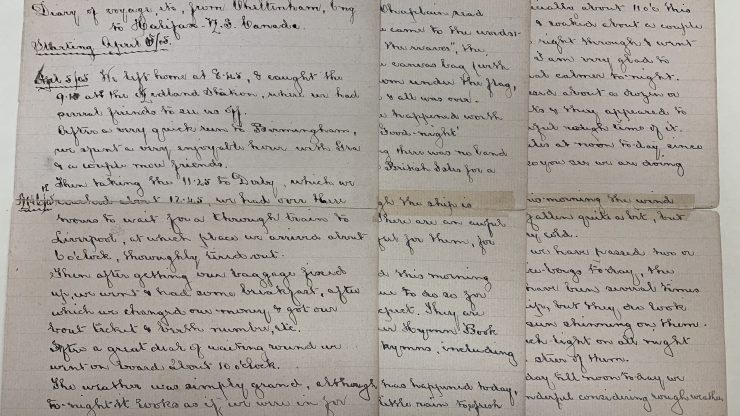 Diary of voyage, etc, from Cheltenham, Eng
to Halifax N.S. Canada.
Starting April 5/05.
Apl 5/05 We left home at 8.45, & caught the
9.15 at the Midland Station, where we had
several friends to see us off.
After a very quick run to Birmingham,
we spent a very enjoyable hour with
& a couple more friends.
Then taking the 11.25 to Derby, which we
reached about 12.45, we had over three
hours to wait for a through train to
Liverpool, at which place we arrived about
6 o'clock, thoroughly tired out.
Then after getting our baggage fixed
up, we went & had some breakfast, after
which we changed our money & got our
boat ticket & birth number, etc.
After a great deal of waiting round we
went on board about 10 o'clock.
The weather was simply grand, although
to-night it looks as if we were in for
Chaplain read
came to the words-
the waves", the
canvas bag forth
from under the flag,
& all was over.
happened worth
Good-night'
there was no band
British Isles for a
the ship is
There are an awful
for them, for
this morning
to do so for
They are
Hymn Book
hymns, including
has happened today,
little rain to fresh
about 110% This
& rocked about a couple
right through & went
I am very glad to
calmer to-night.
about a dozen or
& they appeared to
rough time of it.
at noon to-day, since
so you see we are doing
morning the wind
fallen quite a bit, but
cold.
we have passed two or
ice-bergs to-day, the
have been several times
but they do look
sun shinning on them.
light on all night
steer of them.
day till noon to-day we
wonderful considering rough weather